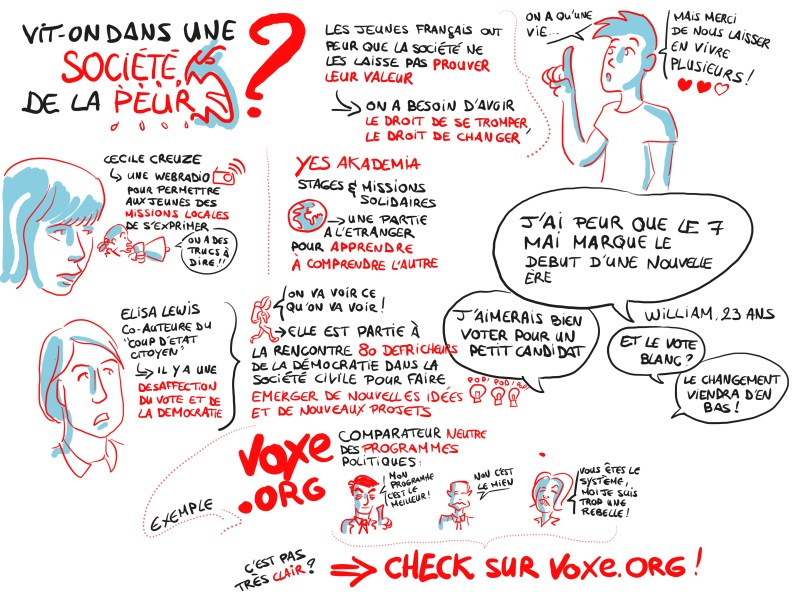 VIT-ON DANS UNE
SOCIÉTÉ
DE LA PEUR
?
LES JEUNES FRANÇAIS ONT
PEUR QUE LA SOCIÉTÉ NE
LES LAISSE PAS PROUVER
LEUR VALEUR
ON A BESOIN D'AVOIR
LE DROIT DE SE TROMPER,
LE DROIT DE CHANGER,
ON A QU'UNE
VIE...
MAIS MERCI
DE NOUS LAISSER
EN VIVRE
PLUSIEURS !
CECILE CREUZE
UNE WEBRADIO
POUR PERMETTRE
AUX JEUNES DES
MISSIONS LOCALES
DE S'EXPRIMER
ON A DES
TRUCS À
DIRE !!
YES AKADEMIA
STAGES & MISSIONS
SOLIDAIRES
UNE PARTIE
A L'ETRANGER
POUR APPRENDRE
À COMPRENDRE L'AUTRE
J'AI PEUR QUE LE 7
MAI MARQUE LE
DEBUT D'UNE NOUVELLE
ÈRE
WILLIAM, 23 ANS
J'AIMERAIS BIEN
VOTER POUR UN
PETIT CANDIDAT
ET LE VOTE
BLANC ?
LE CHANGEMENT
VIENDRA D'EN
BAS !
ELISA LEWIS
CO-AUTEURE DU
"COUP D'ETAT
CITOYEN"
IL Y A UNE
DESAFFECTION
DU VOTE ET DE
LA DEMOCRATIE
ON VA VOIR CE
QU'ON VA VOIR !
ELLE EST PARTIE À
LA RENCONTRE 80 DEFRICHEURS
DE LA DÉMOCRATIE DANS LA
SOCIÉTÉ CIVILE POUR FAIRE
EMERGER DE NOUVELLES IDÉES
ET DE NOUVEAUX PROJETS
POP! POP! POP!
EXEMPLE
VOXE
.ORG
COMPARATEUR NEUTRE
DES PROGRAMMES
POLITIQUES :
MON
PROGRAMME
C'EST LE
MEILLEUR !
NON C'EST
LE MIEN
VOUS ÊTES LE
SYSTÈME,
MOI JE SUIS
TROP UNE
REBELLE !
C'EST PAS
TRÈS CLAIR ?
CHECK SUR VOXE.ORG !